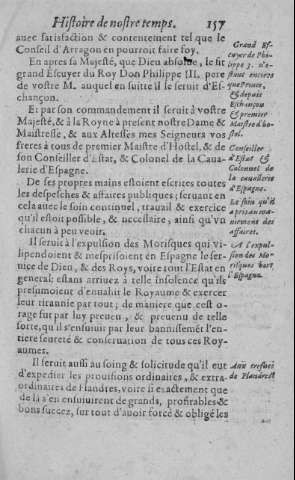 Histoire de nostre temps. 157
auec satisfaction & contentement tel que le
Conseil d'Arragon en pourroit faire foy.
En apres sa Majesté, que Dieu absolue, le fit
grand Escuyer du Roy Don Philippe III, pere
de vostre M. auquel en suitte il le seruit d'Es-
chançon.
Et par son commandement il seruit à vostre
Majesté, & à la Royne à present nostre Dame &
Maistresse, & aux Altesses mes Seigneurs vos
freres à tous de premier Maistre d'Hostel, & de
son Conseiller d'Estat, & Colonel de la Caua-
lerie d'Espagne.
De ses propres mains estoient escrites toutes
les despesches & affaires publiques, seruant en
cela auec le soin continuel, trauail & exercice
qu'il estoit possible, & necessaire, ainsi qu'vn
chacun à peu veoir.
Il seruit à l'expulsion des Morisques qui vi-
lipendoient & mesprisoient en Espagne le ser-
uice de Dieu, & des Roys, voire tout l'Estat en
general: estans arriuez à telle insolence qu'ils
presumoient d'enuahir le Royaume & exercer
leur tirannie par tout; de maniere que cest o-
rage fut par luy preueu, & preuenu de telle
sorte, qu'il s'ensuiuit par leur bannissemẽt l'en-
tiere seureté & conseruation de tous ces Roy-
aumes.
Il seruit aussi au soing & solicitude qu'il eut
d'expedier les prouisions ordinaires, & extra-
ordinaires de Flandres, voire si exactement que
de là s'en ensuiuirent de grands, profitables &
bons succez, sur tout d'auoir forcé & obligé les
Grand Es-
cuyer de Phi-
lippe 3. n'e-
stant encores
que Prince,
& depuis
Eschançon
& premier
Maistre d'ho-
stel.
Conseiller
d'Estat &
Colonnel de
la cauallerie
d'Espagne.
Le soin qu'il
des affaires.
A l'expul-
sion des Mo-
risques hors
l'Espagne.
Aux trefues
de Flandres